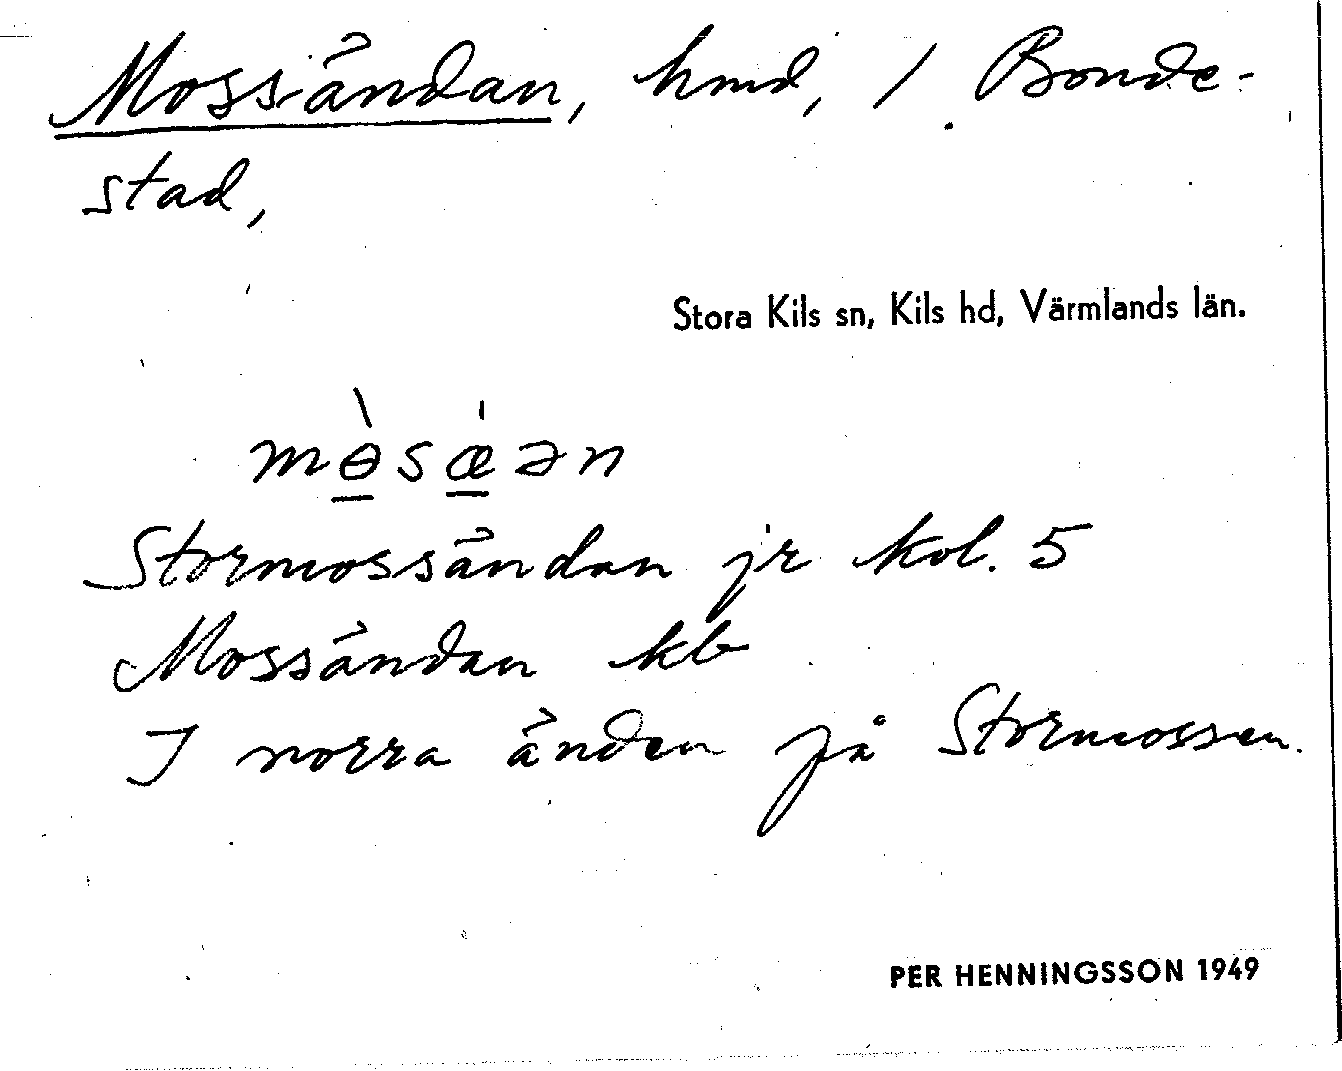 Mossändan, hmd, / Bonde-
stad,
Stora Kils sn, Kils hd, Värmlands län.
mɵ̀sæ̀ən
Stormossändan jr kol. 5
Mossändan kb
I norra änden på Stormossen.
PER HENNINGSSON 1949